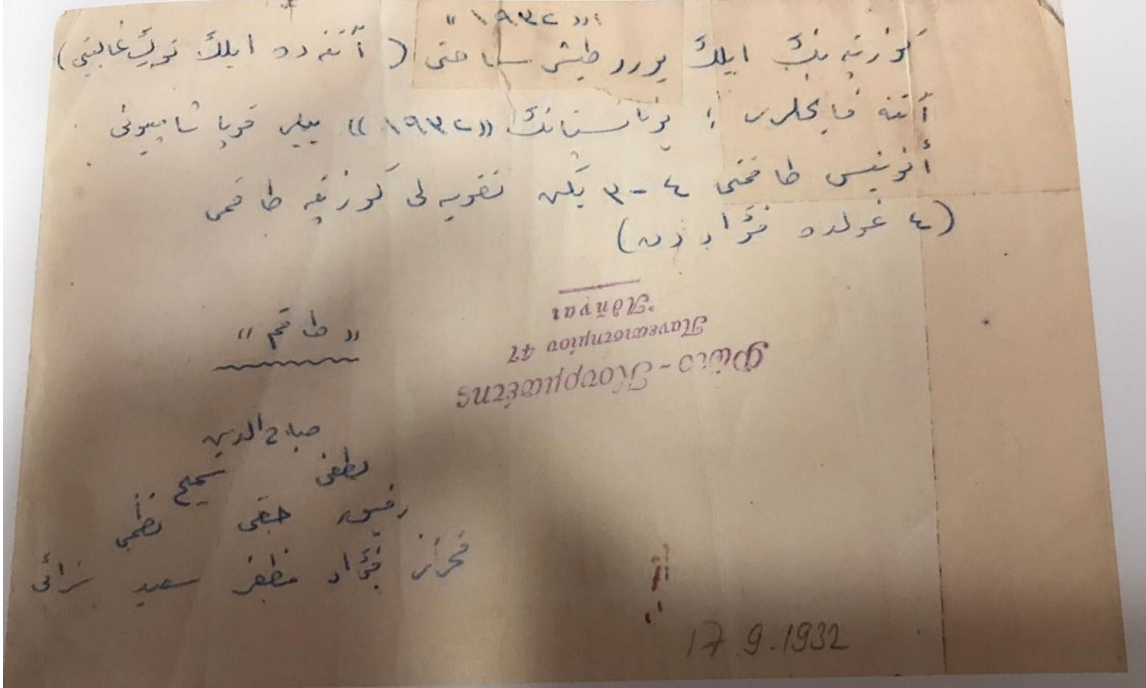 «١٩٣٢»
كوزتپه نڭ ايلك يورد طيشى سياحتى (آتنه ده ايلك تورك غالبيتى)
آتنه فاتحلرى ؛ يونانستانڭ «١٩٣٢» ييلى قوپا شامپيونى
طاقمنى ٤-٣ يڭن تقويه لى كوزتپه طاقمى
(٤ غولده فؤاد دن)
«طاقم»
صباح الدين
لطفى سميح
رفيق حقى نظمى
فؤاد مظفر سعيد
Φώτο-Κουρμπέτης
Πανεπιστημίου 47
Ἀθῆναι
17.9.1932